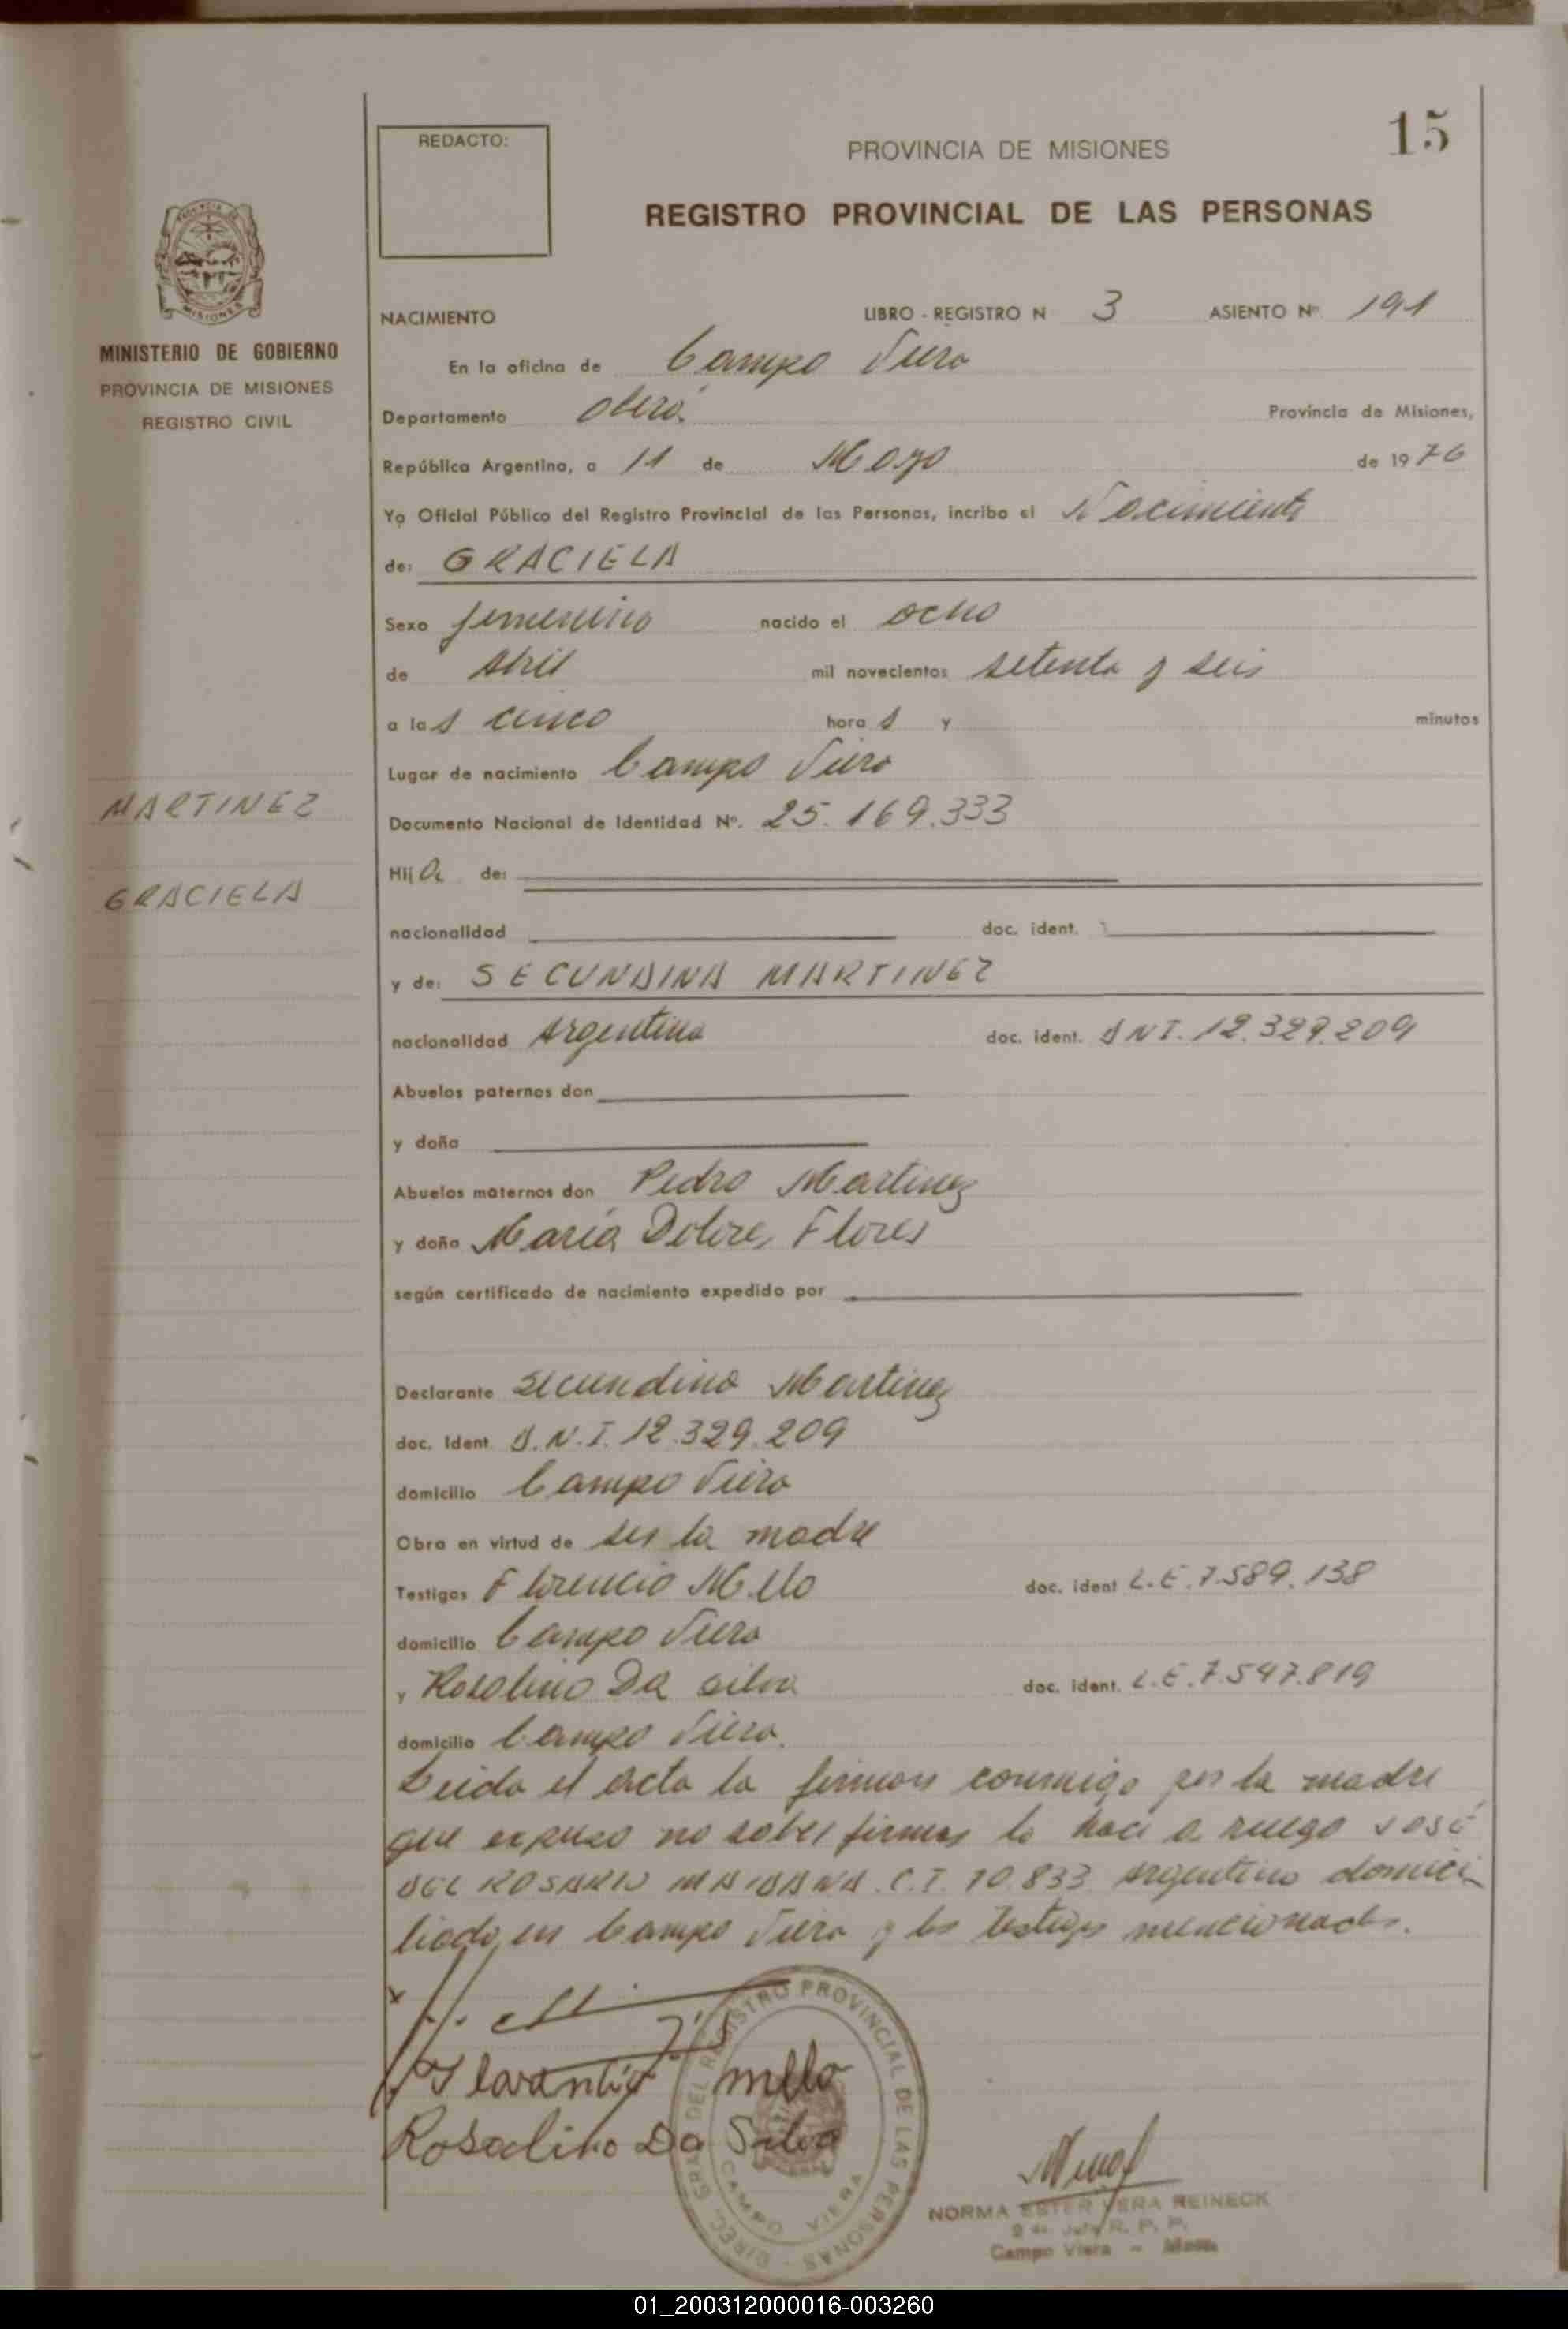 15
REDACTO:
PROVINCIA DE MISIONES
REGISTRO PROVINCIAL DE LAS PERSONAS
MISIONES
MINISTERIO DE GOBIERNO
PROVINCIA DE MISIONES
REGISTRO CIVIL
NACIMIENTO LIBRO - REGISTRO N 3 ASIENTO Nº. 191
En la oficina de Campo Viera
Departamento Oberá. Provincia de Misiones,
República Argentina, a 11 de Mayo de 1976
Yo Oficial Público del Registro Provincial de las Personas, incribo el Nacimiento
de: GRACIELA
Sexo femenino nacido el ocho
de Abril mil novecientos setenta y seis
a las cinco horas y minutos
Lugar de nacimiento Campo Viera
MARTINEZ
Documento Nacional de Identidad Nº. 25.169.333
Hija de:
GRACIELA
nacionalidad doc. ident.
y de: SECUNDINA MARTINEZ
nacionalidad Argentina doc. ident. DNI. 12.329.209
Abuelos paternos don
y doña
Abuelos maternos don Pedro Martinez
y doña María Dolores Flores
según certificado de nacimiento expedido por
Declarante Secundina Martinez
doc. Ident. D.N.I. 12.329.209
domicilio Campo Viera
Obra en virtud de ser la madre
Testigos Florencio Mello doc. ident L.E. 7.589.138
domicilio Campo Viera
y Rosalino Da Silva doc. ident. L.E. 7.547.819
domicilio Campo Viera.
Leida el acta la firman conmigo por la madre
que expuso no saber firmar lo hace a ruego José
DEL ROSARIO MAIDANA C.I. 70.833 Argentino domici-
liado en Campo Viera y los testigos mencionados.
Florentio mello
Rosalino Da Silva
DIREC. GRAL DEL REGISTRO PROVINCIAL DE LAS PERSONAS -
CAMPO VIERA
NORMA ESTER VERA REINECK
R. P. P.
Campo Viera - Mnes
01_200312000016-003260